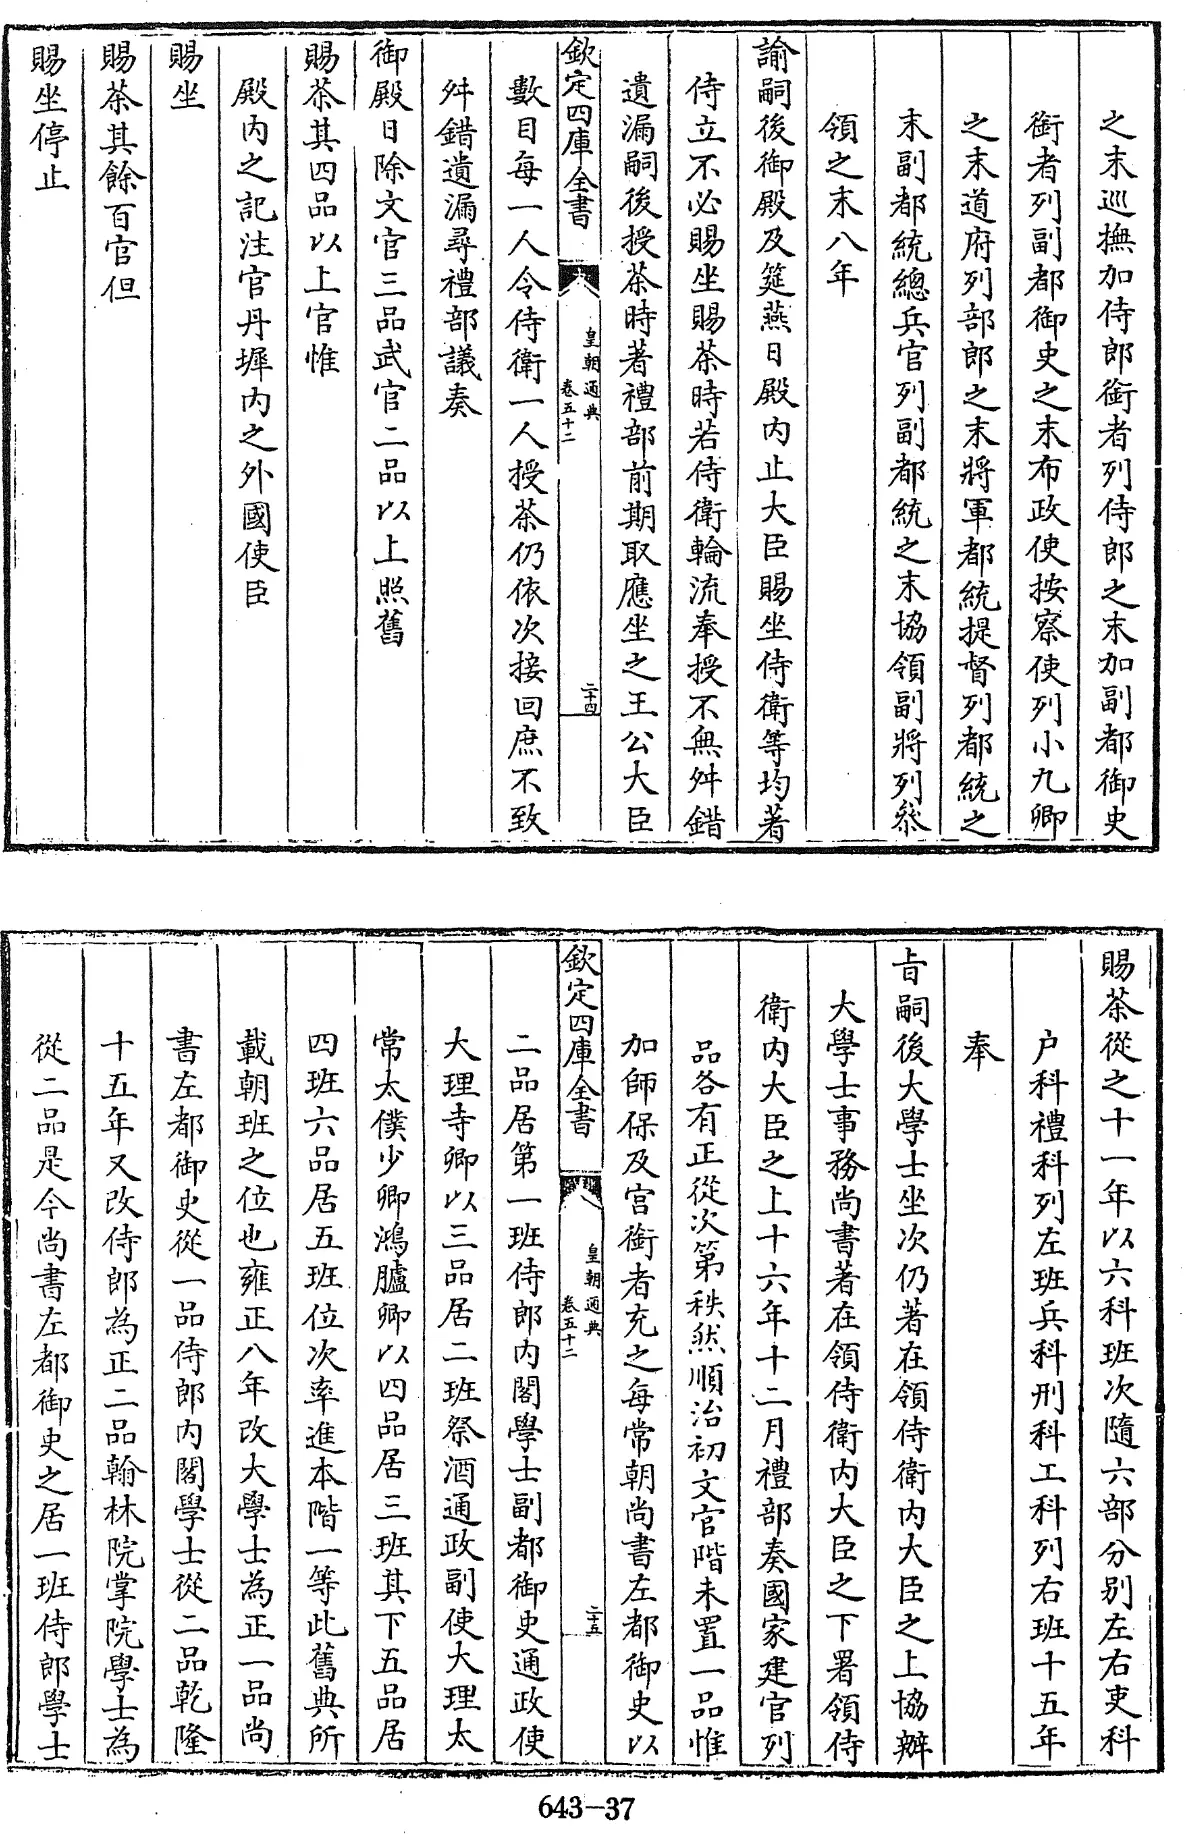 之末巡撫加侍郎銜者列侍郎之末加副都御史
銜者列副都御史之末布政使按察使列小九卿
之末道府列部郎之末將軍都統提督列都統之
末副都統總兵官列副都統之末協領副將列叅
領之末八年
諭嗣後御殿及筵燕日殿内止大臣賜坐侍衛等均著
侍立不必賜坐賜茶時若侍衛輪流奉授不無舛錯
遺漏嗣後授茶時著禮部前期取應坐之王公大臣
欽定四庫全書
皇朝通典
卷五十二
二十四
數目每一人令侍衛一人授茶仍依次接回庶不致
舛錯遺漏尋禮部議奏
御殿日除文官三品武官二品以上照舊
賜茶其四品以上官惟
殿内之記注官丹墀内之外國使臣
賜坐
賜茶其餘百官但
賜坐停止
賜茶從之十一年以六科班次隨六部分别左右吏科
户科禮科列左班兵科刑科工科列右班十五年
奉
旨嗣後大學士坐次仍著在領侍衛内大臣之上協辦
大學士事務尚書著在領侍衛内大臣之下署領侍
衛内大臣之上十六年十二月禮部奏國家建官列
品各有正從次第秩然順治初文官階未置一品惟
加師保及宫銜者充之每常朝尚書左都御史以
欽定四庫全書
皇朝通典
卷五十二
二十五
二品居第一班侍郎内閣學士副都御史通政使
大理寺卿以三品居二班祭酒通政副使大理太
常太僕少卿鴻臚卿以四品居三班其下五品居
四班六品居五班位次率進本階一等此舊典所
載朝班之位也雍正八年改大學士為正一品尚
書左都御史從一品侍郎内閣學士從二品乾隆
十五年又改侍郎為正二品翰林院掌院學士為
從二品是今尚書左都御史之居一班侍郎學士
643-37